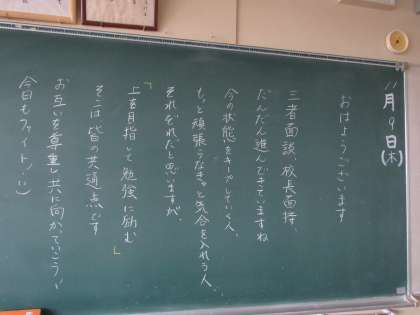 11月9日(木)
おはようございます
三者面談、校長面接、
だんだん進んできていますね
今の状態をキープしていく人、
もっと頑張らなきゃと気合を入れる人、
それぞれだと思いますが、
「上を目指して勉強に励む」
そこは皆の共通点です
お互いを尊重し共に向かっていこう!
今日もファイト!:)